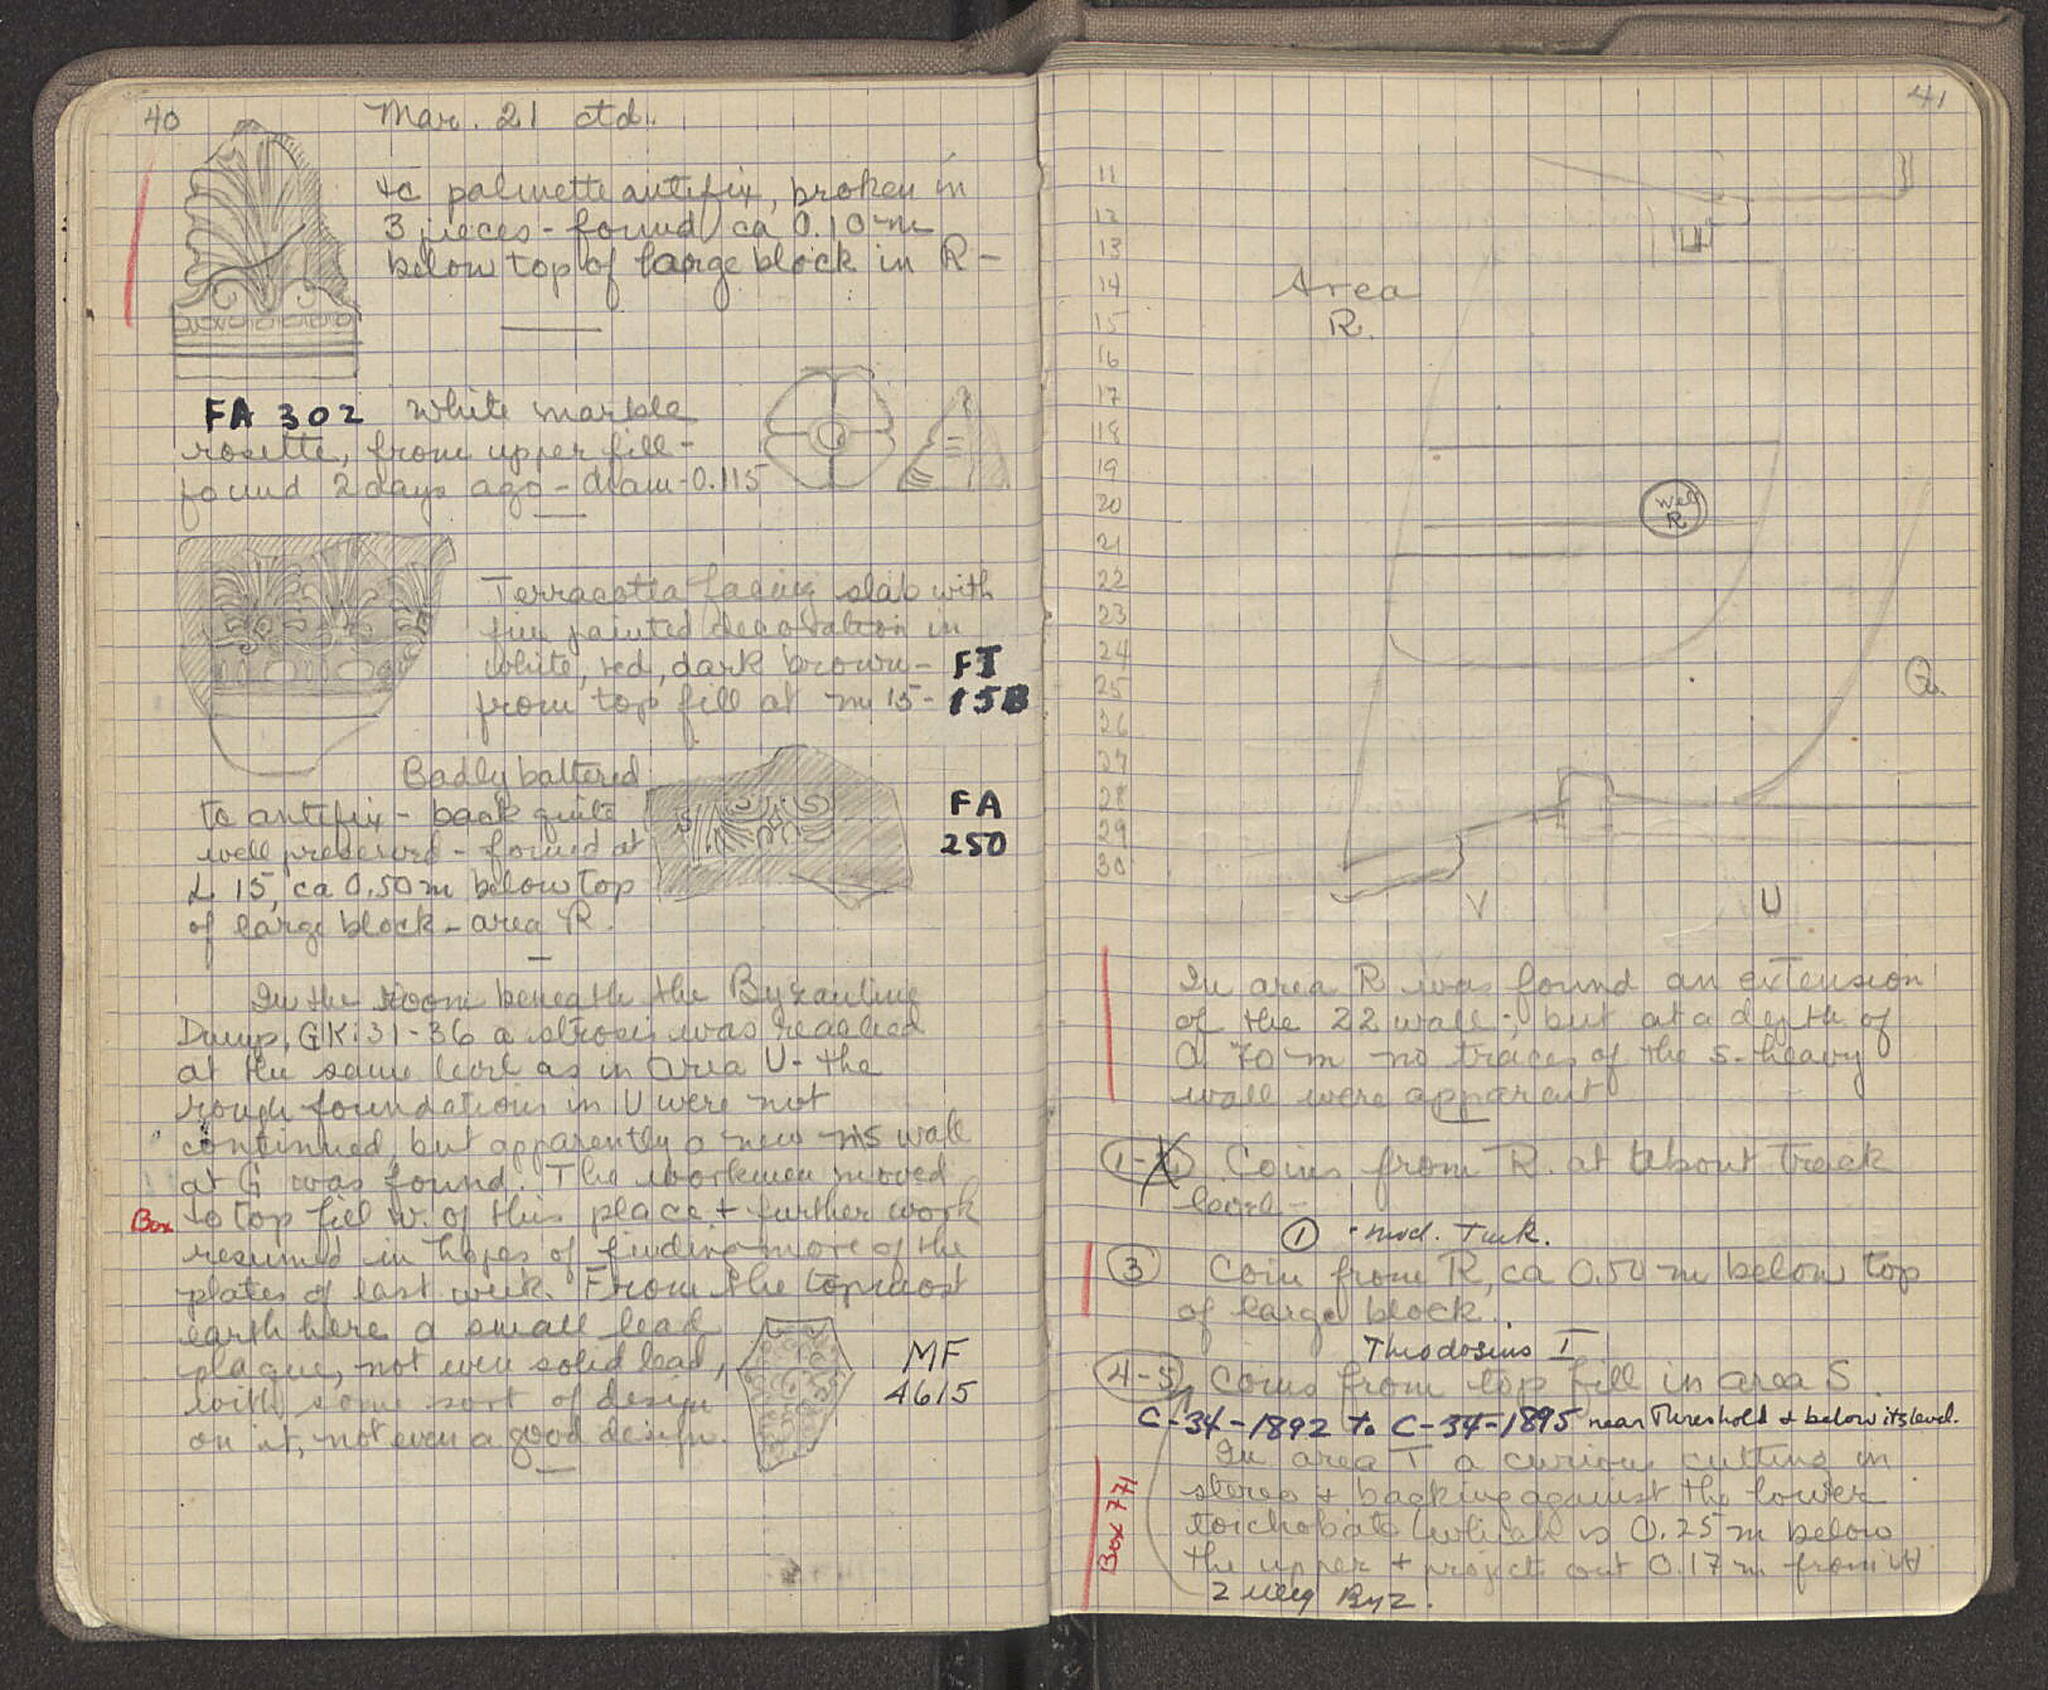 40
Mar. 21 ctd.
tc palmette antefix, broken in
3 pieces - found ca 0.10 m
below top of large block in R -
FA 302 White marble
rosette, from upper fill -
found 2 days ago - diam - 0.115
Terracotta facing slab with
fine painted decoration in
white, red, dark brown - FT
from top fill at m 15 - 15B
Badly battered
tc antefix - back quite
well preserved - found at
L 15, ca 0.50 m below top
of large block - area R.
FA
250
In the room beneath the Byzantine
Dump, G-K: 31-36 a strosis was reached
at the same level as in area U - the
rough foundations in U were not
continued, but apparently a new ns wall
at G was found. The workmen moved
Box to top fill w. of this place + further work
resumed in hopes of finding more of the
plates of last week. From the topmost
earth here a small lead
plaque, not even solid lead,
with some sort of design
on it, not even a good design.
MF
4615
41
11
12
13
14
15
16
17
18
19
20
21
22
23
24
25
26
27
28
29
30
Area
R.
Well
R
Q
V U
In area R was found an extension
of the 22 wall; but at a depth of
0.70 m no traces of the s-heavy
wall were apparent
Coins from R. at about track
level -
1 - mod. Turk.
3 Coin from R, ca 0.50 m below top
of large block.
Theodosius I
4-5 Coins from top fill in area S.
C-34-1892 to C-34-1895 near Threshold & below its level.
In area T a curious cutting in
stereo + backing against the lower
toichobate (which is 0.25 m below
the upper + projects out 0.17 m from it)
Box 771
2 illeg Byz.